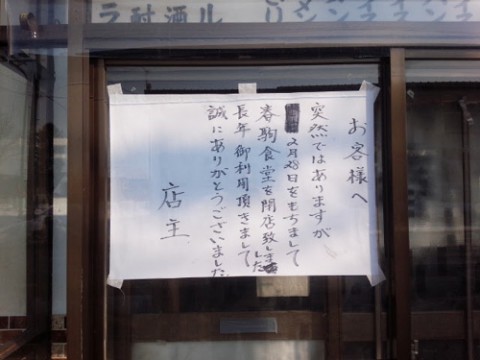 お客様へ
突然ではありますが
2月28日をもちまして
春駒食堂を閉店致しました
長年御利用頂きまして
誠にありがとうございました。
店主